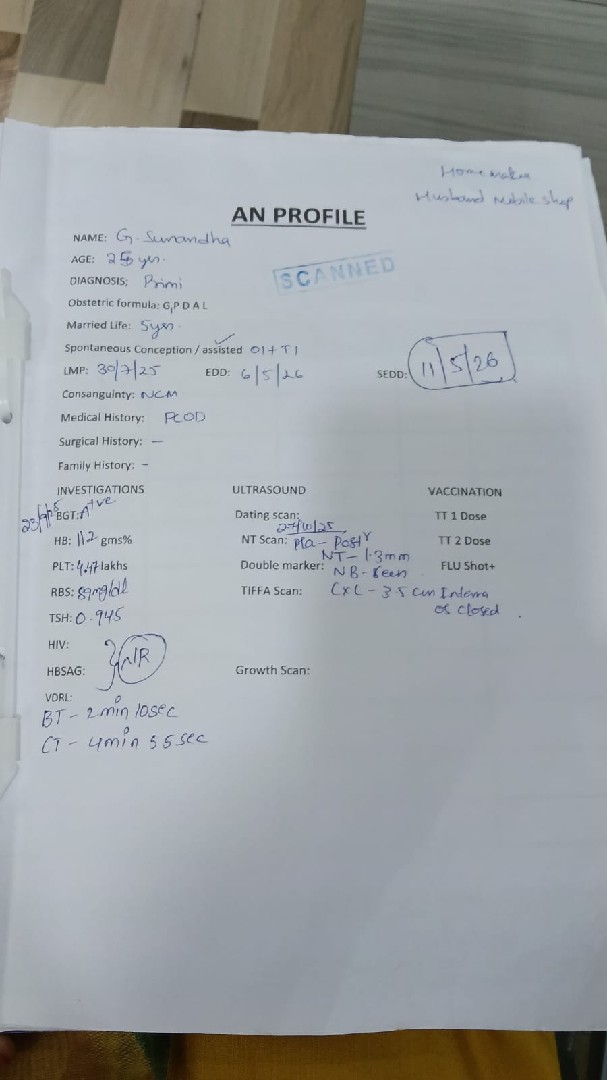 Home maker
Husband Mobile shop
AN PROFILE
NAME: G. Sunandha
AGE: 25 yrs.
SCANNED
DIAGNOSIS: Primi
Obstetric formula: G,P D A L
Married Life: 5yrs.
Spontaneous Conception / assisted OI + TI
LMP: 30/7/25 EDD: 6/5/26 SEDD: 11/5/26
Consanguinty: NCM
Medical History: PCOD
Surgical History: —
Family History: -
INVESTIGATIONS ULTRASOUND VACCINATION
BGT: A+ve Dating scan: TT 1 Dose
HB: 11.2 gms% NT Scan: Pla - Postr TT 2 Dose
NT - 1.3mm
PLT: 4.47 lakhs Double marker: NB - Seen FLU Shot+
RBS: 89mg/dl TIFFA Scan: CxL - 3.5 cm Interna
os closed.
TSH: 0.945
HIV:
HBSAG: } NR Growth Scan:
VDRL:
BT - 2min 10sec
CT - 4min 55sec